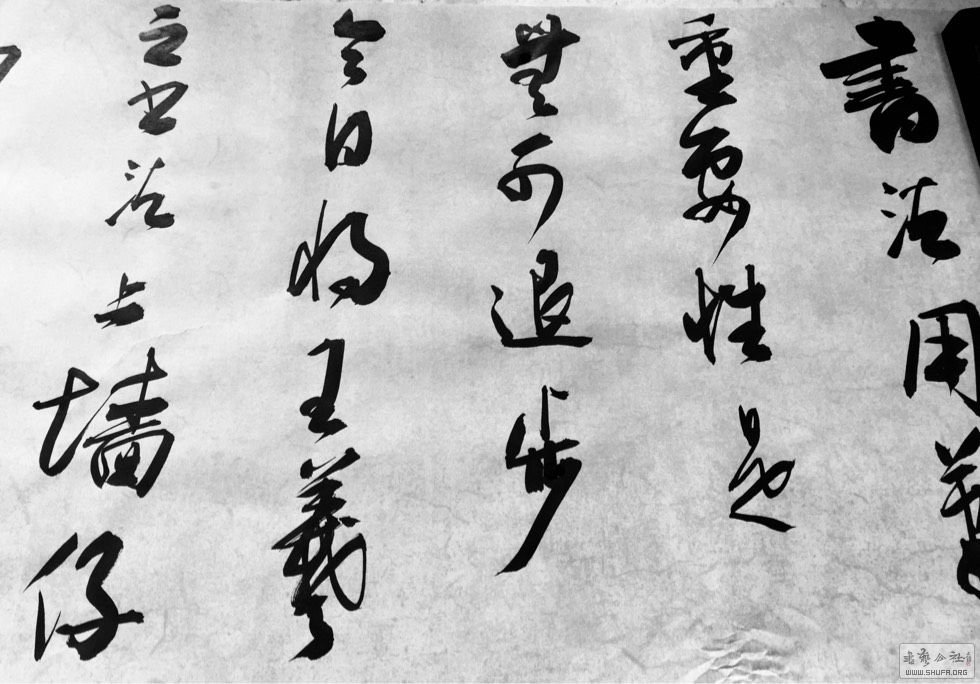 書法用筆
重要性是
無可退步
今日将王羲
之书法上墙仔
書藝公社
WWW.SHUFA.ORG